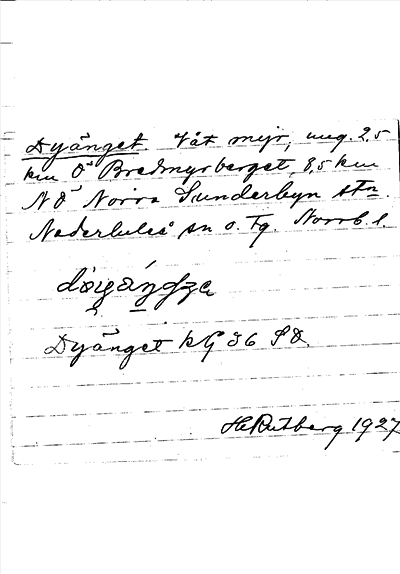 Dyänget. Våt myr, ung. 2,5
km Ö Bredmyrberget, 8,5 km
NÖ Norra Sunderbyn stn.
Nederluleå sn o. Tg. Norrb. l.
Dyänget kG 36 SÖ.
H. Rutberg 1927